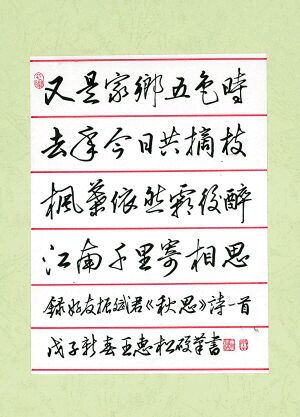 又是家鄉五色時
去年今日共摘枝
楓葉依然霜後醉
江南千里寄相思
録好友振斌君《秋思》詩一首
戊子新春王惠松硬筆書